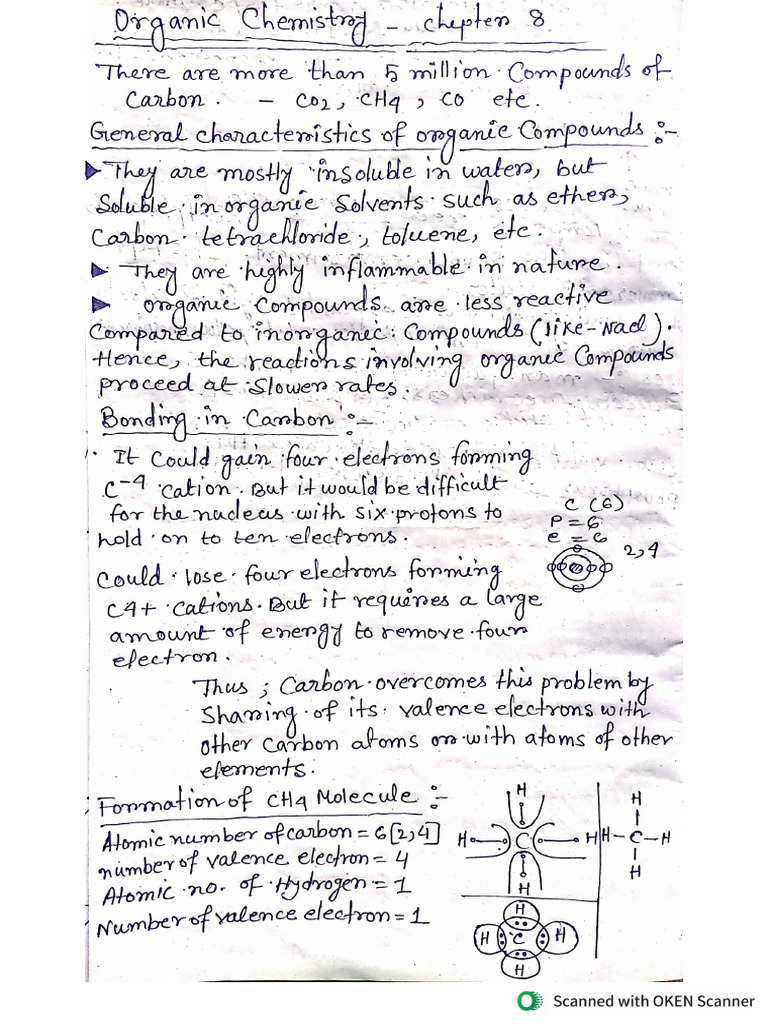 Organic Chemistry - chepter 8
There are more than 5 million Compounds of
Carbon. - CO2, CH4, CO etc.
General characteristics of organic Compounds :-
They are mostly insoluble in water, but
Soluble in organic Solvents such as ether,
Carbon tetrachloride, toluene, etc.
They are highly inflammable in nature.
organic Compounds are less reactive
Compared to inorganic Compounds (like-Nacl).
Hence, the reactions involving organic Compounds
proceed at slower rates.
Bonding in Carbon :-
It could gain four electrons forming
C-4 cation. But it would be difficult
for the nucleus with six protons to
hold on to ten electrons.
C (6)
P = 6
e = 6
2,4
Could lose four electrons forming
C4+ cations. But it requires a large
amount of energy to remove four
electron.
Thus ; Carbon overcomes this problem by
Sharing of its valence electrons with
other carbon atoms or with atoms of other
elements.
Formation of CH4 Molecule :-
Atomic number of carbon = 6[2,4]
number of valence electron = 4
Atomic no. of Hydrogen = 1
Number of valence electron = 1
H
H C H
H
H
H-C-H
H
H
H C H
H
Scanned with OKEN Scanner